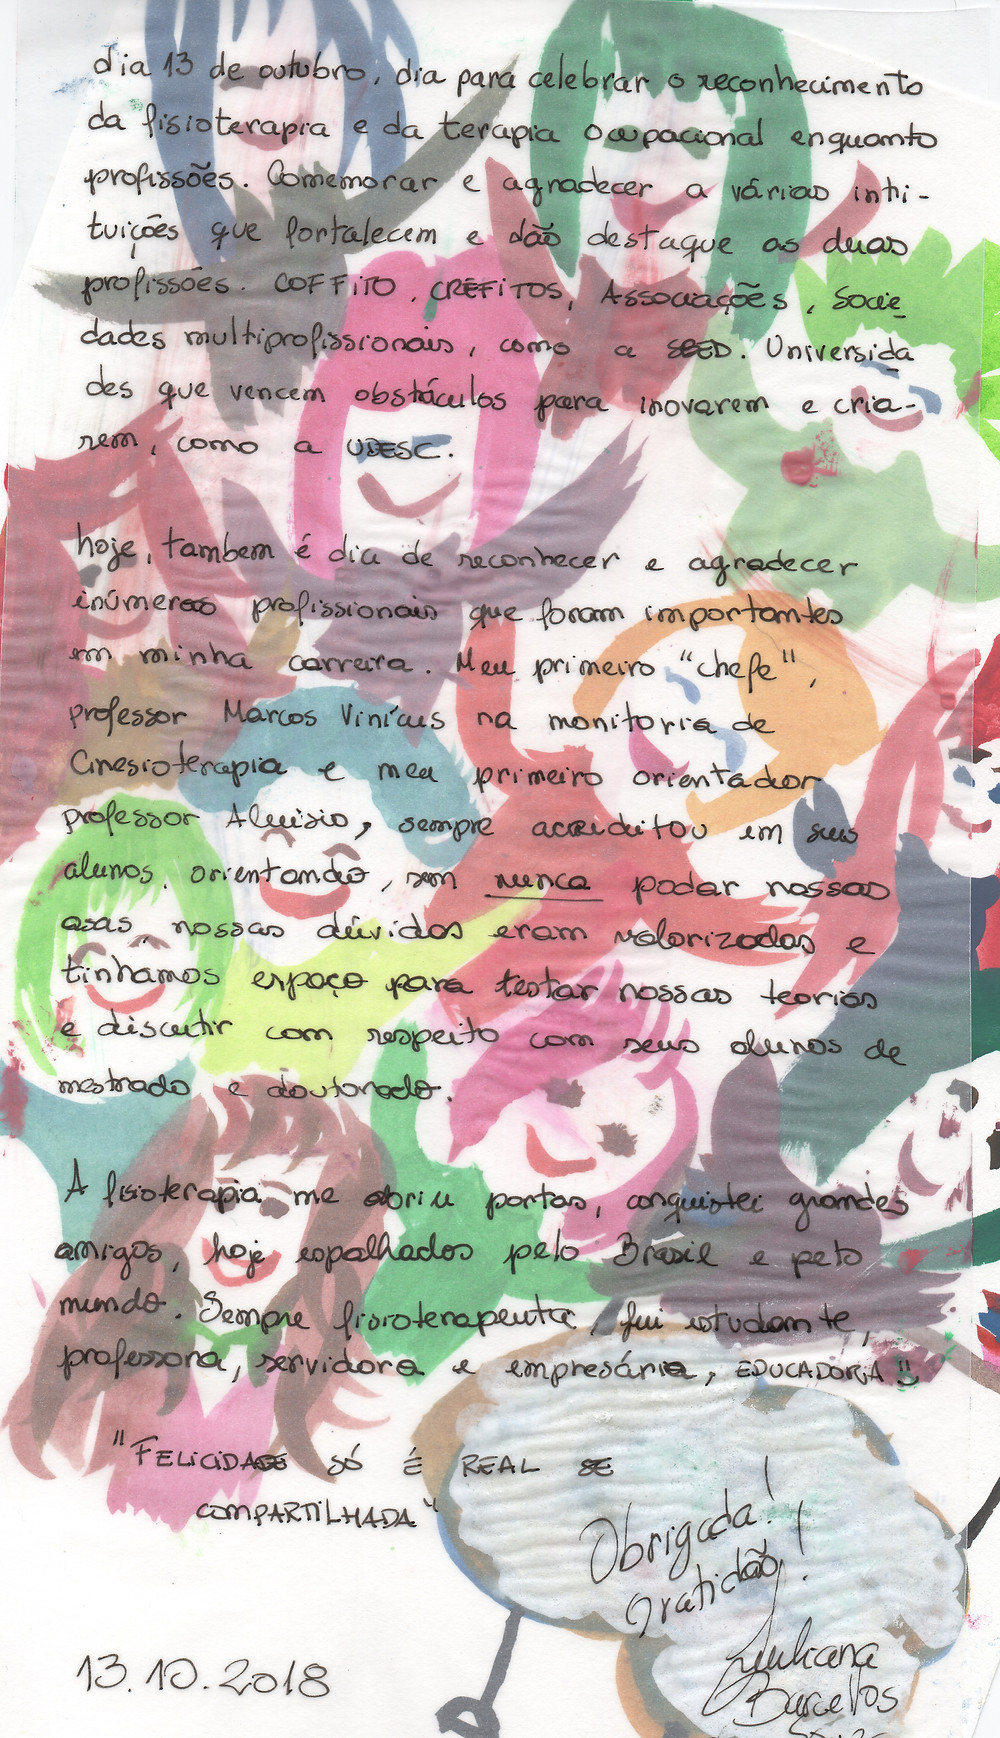 dia 13 de outubro, dia para celebrar o reconhecimento
da fisioterapia e da terapia ocupacional enquanto
profissões. Comemorar e agradecer a várias inti-
tuições que fortalecem e dão destaque as duas
profissões. COFFITO, CREFITOS, Associações, Socie
dades multiprofissionais, como a SBED. Universida
des que vencem obstáculos para inovarem e cria-
rem, como a UDESC.
hoje, tambem é dia de reconhecer e agradecer
inúmeros profissionais que foram importantes
em minha carreira. Meu primeiro "chefe",
professor Marcos Vinícius na monitoria de
Cinesioterapia e meu primeiro orientador
professor Aluisio, sempre acreditou em seus
alunos, orientando, sem nunca podar nossas
asas, nossas dúvidas eram valorizadas e
tinhamos espaço para testar nossas teorias
e discutir com respeito com seus alunos de
mestrado e doutorado.
A fisioterapia me abriu portas, conquistei grandes
amigos, hoje espalhados pelo Brasil e pelo
mundo. Sempre fisioterapeuta, fui estudante,
professora, servidora e empresária, EDUCADORA!!
"FELICIDADE SÓ É REAL SE
COMPARTILHADA"
Obrigada!
Gratidão!
Juliana
Barcellos
13.10.2018